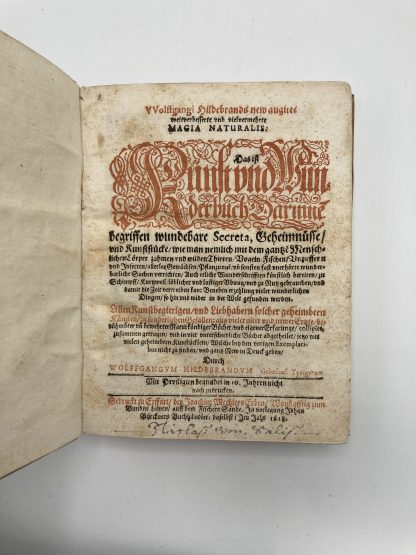 VVolffgangi Hildebrands new augirte
weitverbesserte vnd vielvermehrte
MAGIA NATURALIS:
Das ist
Kunst vnd Wun
derbuch Darinne
begriffen wundebare Secreta, Geheimnüsse/
vnd Kunststücke/ wie man nemlich mit dem gantzē Mensch-
lichen Cörper zahmen vnd wilden Thieren/ Vogeln/ Fischen/ Vnzieffern
vnd Insecten/ allerley Gewächsen/ Pflantzungē vñ sonsten fast vnerhörte wunder-
barliche Sachen verrichten/ Auch etliche Wunderschrifften künstlich bereiten/ zu
Schimpff/ Kurtzweil/ löblicher vnd lustiger Vbung/ vnd zu Nutz gebrauchen/ vnd
damit die Zeit vertreiben kan: Beneben erzehlung vieler wunderlichen
Dingen/ so hin vnd wider in der Welt gefunden werden.
Allen Kunstbegierigen/ vnd Liebhabern solcher geheimbten
Künsten/ zu sonderlichen Gefallen/ aus vielen alten vnd
zusammen getragen/ vnd in vier vnterschiedliche Bücher abgetheilet/ jetzo mit
vielen geheimbten Kunststücklein/ Welche bey den vorigen Exemplari-
bus nicht zu finden/ vnd gantz New in Druck geben/
Durch
WOLFFGANGVM HILDEBRANDVM
Mit Privilegien begnadet in 10. Jahren nicht
nach zudrucken.
Gedruckt zu Erffurt/ bey Joachim Mechlers Erben/ Wonhafftig zum
Bunden Lawen/ auff dem Fischers Sande. In verlegung Johan
Bürckners Buchhändler. daselbst/ Im Jahr 1618.
von Salis